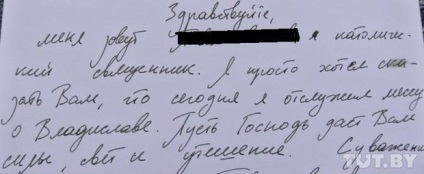 Здравствуйте,
меня зовут я католиче-
ский священник. Я просто хотел ска-
зать Вам, что сегодня я отслужил мессу
о Владиславе. Пусть Господь даст Вам
силы, свет и утешение. С уважени
TUT.BY